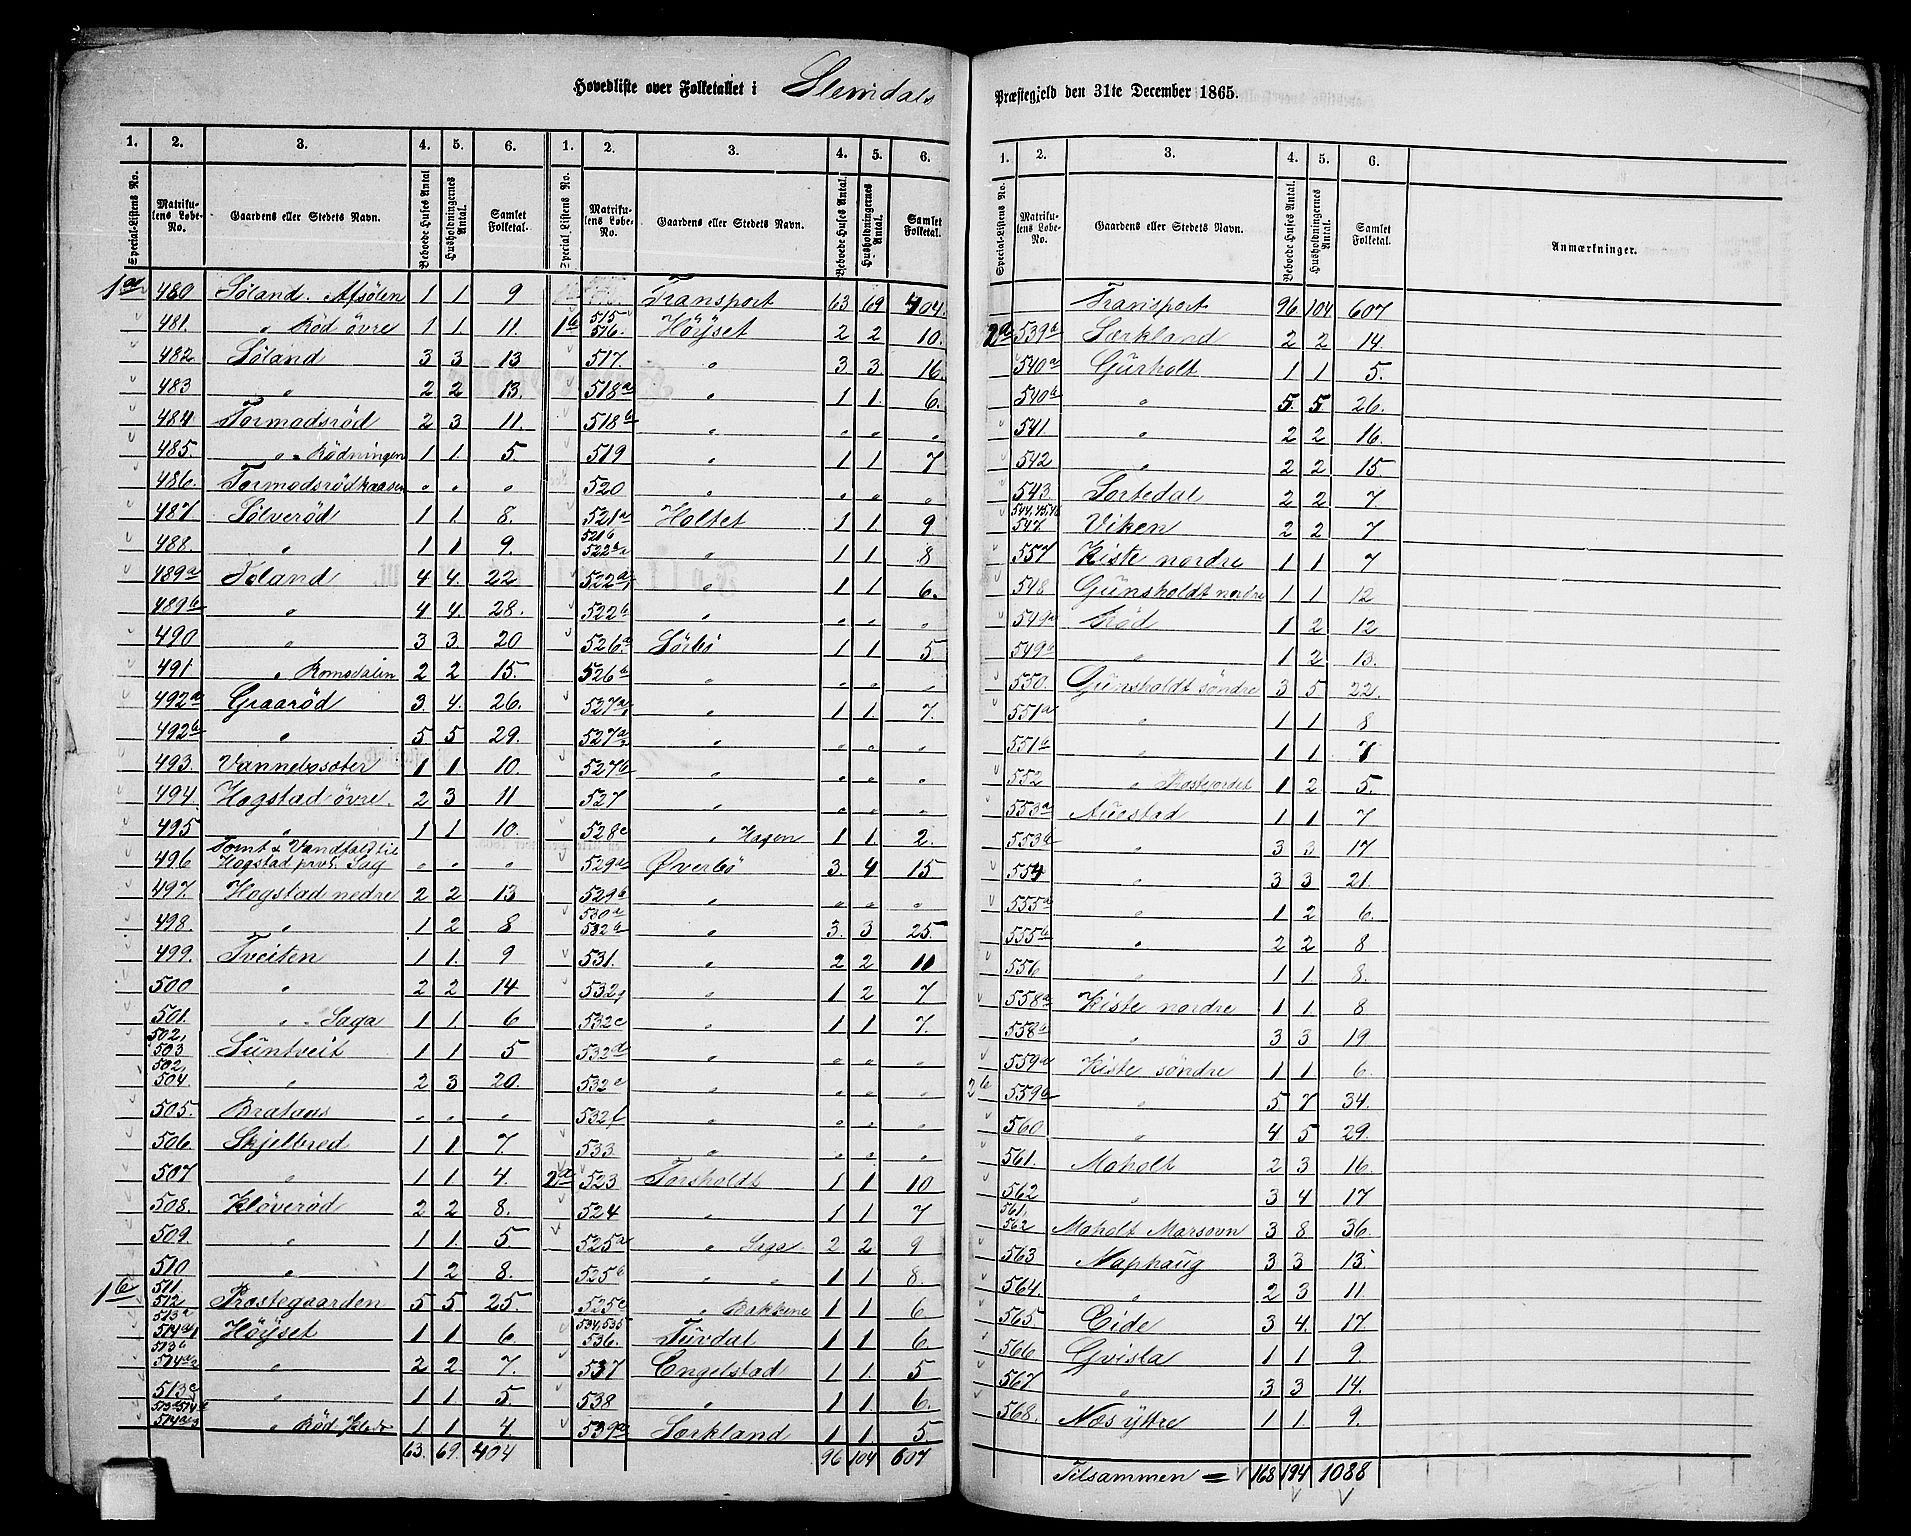 Hovedliste over Folketallet i Slemdals
Præstegjeld den 31te December 1865.
1. 2. 3. 4. 5. 6.
Special-Listens No. Matrikulens Løbe-No. Gaardens eller Stedets Navn. Beboede Huses Antal Husholdningernes Antal. Samlet Folketal.
1a 480 Söland. Afsölen 1 1 9
481. " Röd övre 1 1 11.
482 Söland 3 3 13
483 " 2 2 13.
484. Tormodsröd 2 3 11.
485. " Rödningen 1 1 5.
486. Tormodsrödkaasen " " "
487. Sölveröd 1 1. 8.
488. " 1 1 9.
489a Foland 4 4. 22
489b " 4 4. 28.
490 " 3 3. 20
491 " Romsdalen 2 2 15.
492a Graaröd 3. 4. 26.
492b " 5 5 29.
493. Vannebosæter 1 1 10.
494. Hogstad övre. 2 3 11
495 " 1 1 10.
496 Tomt & Vandfald til Hogstad prvl. Sag " " "
497. Hogstad nedre 2 2 13
498. " 1 2 8
499. Tveiten 1 1. 9
500 " 2 2 14
501. " Saga 1 1. 6
502, 503 Suntveit 1 1 5
502, 504 " 2 3 20.
505. Brataas " " "
506. Skjelbred 1 1 7
507 " 1 1 4.
508. Klöveröd 2 2 8.
509. " 1 1. 5.
510 " 1 2 8.
1b 511 512 Præstegaarden 5 5 25.
513a 514a1 Höyset 1 1 6.
513b 514a2 " 2 2. 7.
513c " 1 1 5.
514a3 " Röd 1 1 4
63. 69. 404
1. 2. 3. 4. 5. 6.
Special Listens No. Matrikulens Løbe-No. Gaardens eller Stedets Navn. Beboede Huses Antal. Husholdningernes Antal. Samlet Folketal.
Transport 63 69 404.
1b 515 516. Höyset 2 2 10.
517. " 3 3 16.
518a " 1 1. 6.
518b " " " "
519 " 1 1 7
520 " " " "
521a Holtet 1 1 9
521b 522a1 " 1 1 8
522a2 " 1 1 6.
522b " " " "
526a Sörbö 1 1 5.
526b " " " "
527a1 " 1 1. 7.
527a2 " " " "
527b " " " "
527 " " " "
528c " Hagen 1 1. 2.
529a Øverbö 3. 4 15
529b " " " "
530a 532b " 3. 3 25.
531. " 2 2 11
532g " 1 2 7
532c " 1 1 7.
532d " " " "
532e " " " "
532f " " " "
533 " " " "
2a 523 Torsholdt 1 1 10
524 " 1 1. 7
525a " Saga 2 2 9
525b " " 1 1 8.
525c " Bakkene 1 1 6
534,535 536. Tuvdal 1 1 6.
537 Engelstad 1 1. 5
538 " 1 1 6.
539a Sørkland 1 1. 5.
96 104 607
1. 2. 3. 4. 5. 6.
Special-Listens No. Matrikulens Løbe-No. Gaardens eller Stedets Navn. Beboede Huses Antal. Husholdningernes Antal. Samlet Folketal. Anmærkninger.
Transport 96 104 607
2a 539b Sørkland 2 2 14.
540a Gurholt 1 1 5.
540b " 5. 5 26.
541 " 2 2 16.
542 " 2 2 15
543. Sortedal 2 2 7.
544,45,46 547. Viken 2 2 7
557 Kiste nordre 1 1 7
548 Gunsholdt nordre 1 1 12
549a Röd 1 2 12
549b " 1 2 13.
550. Gunsholdt söndre 3 5 22.
551a " 1 1 8
551b " 1 1 7
552 " 1 2 5.
553a Auestad 1 1 7
553b " 3 3 17
554 " 3 3 21.
555a " 1 2 6.
555b " 2 2 8
556 " 1 1 8.
558a Kiste nordre 1 1 8
558b " 3 3 19
559a Kiste söndre 1 1 6.
2b 559b " 5 7 34.
560 " 4 5 29.
561. Moholt 2 3 16
562 " 3 4 17
561, 562 Moholt Marsovn 3 8 36.
563 Naphaug 3 3 13.
564. " 2 3 11.
565 Eide 3 4. 17.
566 Gvisla 1 1 9.
567 " 3 3 14.
568. Næs yttre 1 1. 9.
Tilsammen = 168 194 1088